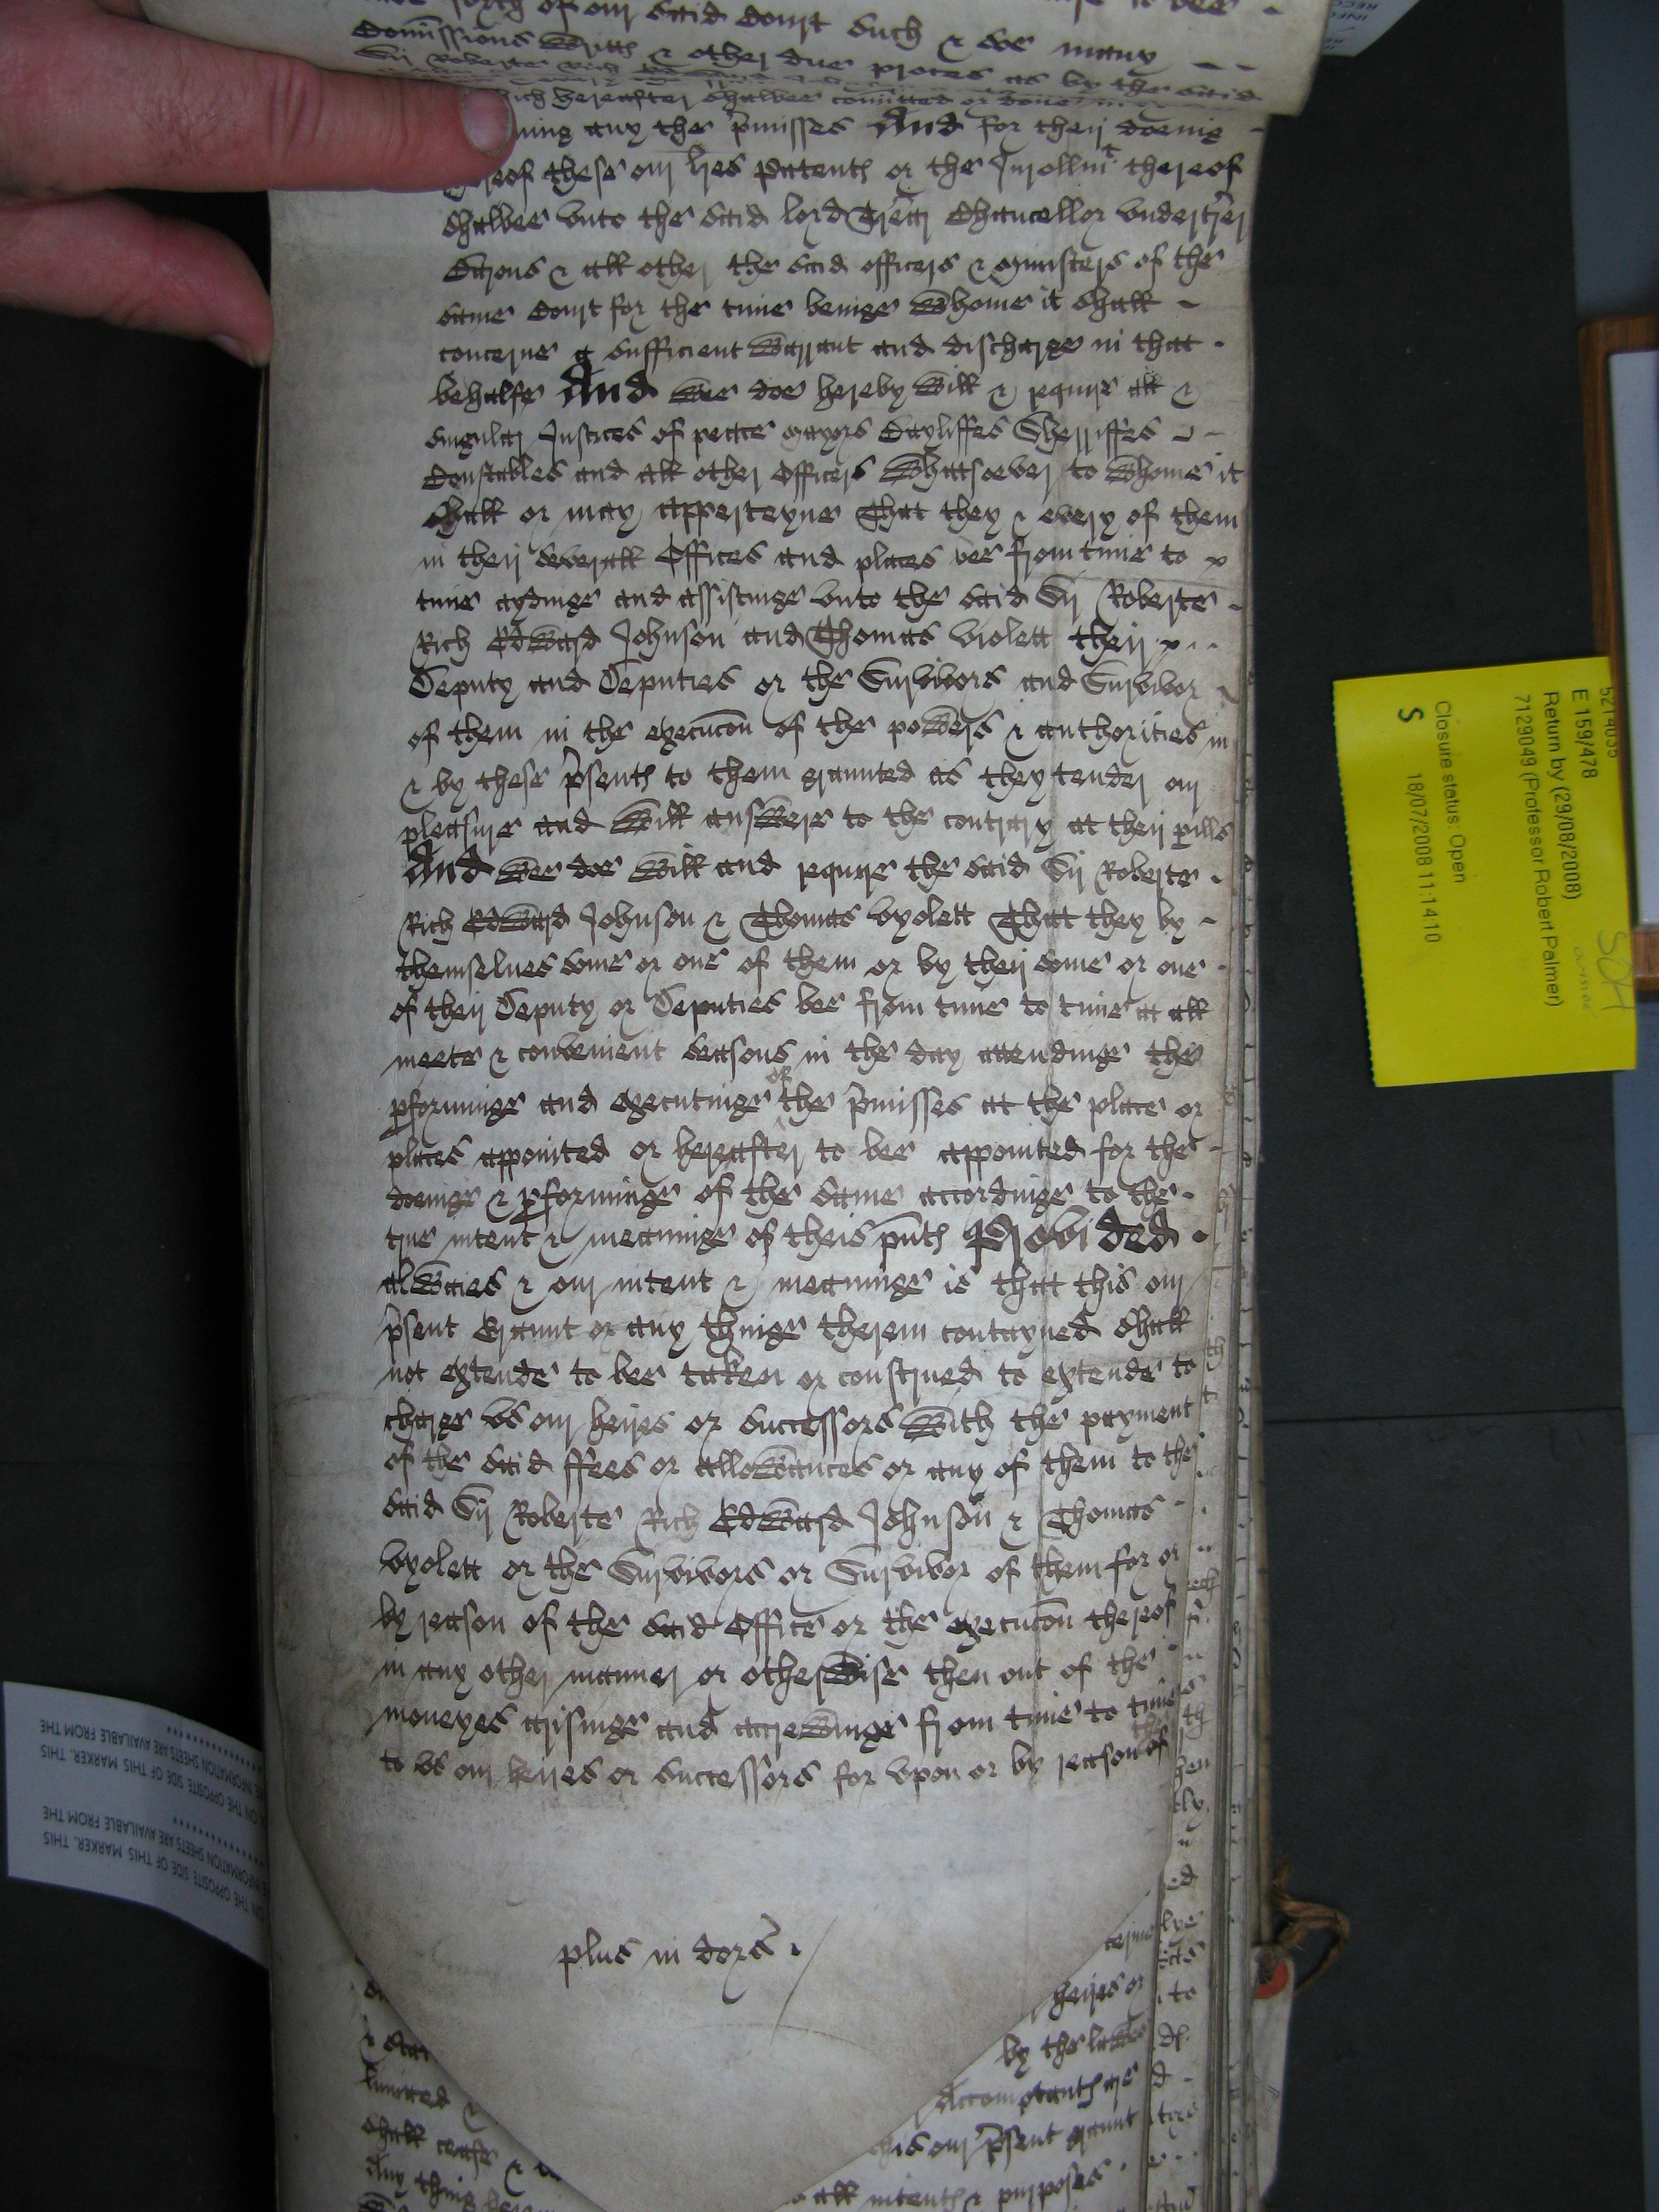 of our said Court such & soe many
Comissions Writts & other due proces as by the said
Sir Roberte Rich
hereafter shalbee comitted or done
any the p'misses And for their doeing
thereof these our l'res Patents or the Inrollm't thereof
shalbee vnto the said lord Tr'er Chancellor vndertr'er
Barons & all other the said officers & ministers of the
same Court for the time beinge Whome it shall
concerne a sufficient Warrant and discharge in that
behalfe And Wee doe hereby Will & require all &
singular Justices of peace mayors Bayliffes Sherriffes
Constables and all other Officers Whatsoever to Whome it
shall or may apperteyne That they & every of them
in their severall Offices and places bee from time to
time aydinge and assistinge vnto the said Sir Roberte
Rich Edward Johnson and Thomas violett their
Deputy and Deputies or the Survivors and Survivor
of them in the execucon of the powers & authorities in
& by these p'sents to them graunted as they tender our
pleasure and Will answere to the contrary at their p'ills
And Wee doe Will and require the said Sir Roberte
Rich Edward Johnson & Thomas vyolett That they by
themselues some or one of them or by their some or one
of their Deputy or Deputies bee from time to time at all
meete & convenient seasons in the day attendinge the
p'forminge and executinge of the p'misses at the place or
places appointed or hereafter to bee appointed for the
doeinge & p'forminge of the same accordinge to the
true intent & meaninge of theis p'nts Provided
alwaies & our intent & meaninge is that this our
p'sent Graunt or any thinge therein contayned shall
not extende to bee taken or construed to extende to
charge vs our heires or successors With the payment
of the said ffees or allowances or any of them to the
said Sir Roberte Rich Edward Johnson & Thomas
vyolett or the Survivors or Survivor of them for or
by reason of the said Office or the execucon thereof
in any other manner or otherwise then out of the
moneyes arisinge and accrewinge from time to time
to vs our heires or successors for vpon or by reason of the
plus in dors'
heires or
by the lawes
Accomptants are
this our p'sent graunt
limited &
shall cease &
all intents & purposes
Any thing
E 159/478
Return by (29/08/2008)
7129049 (Professor Robert Palmer)
Closure status: Open
18/07/2008 11:14:10
S
ON THE OPPOSITE SIDE OF THIS MARKER. THIS
INFORMATION SHEETS ARE AVAILABLE FROM THE
ON THE OPPOSITE SIDE OF THIS MARKER. THIS
INFORMATION SHEETS ARE AVAILABLE FROM THE